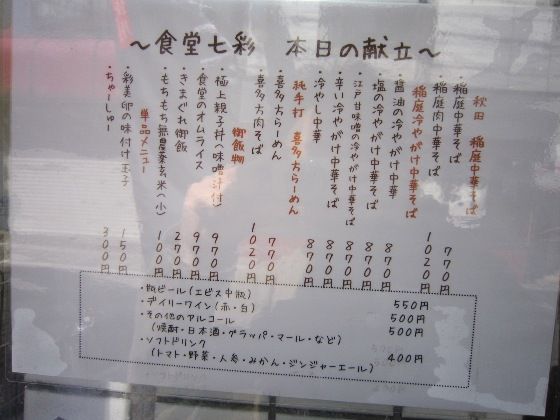 ～食堂七彩　本日の献立～
秋田　稲庭中華そば
・稲庭中華そば　７７０円
・稲庭肉中華そば　１０２０円
稲庭冷やがけ中華そば
・醤油の冷やがけ中華　８７０円
・塩の冷やがけ中華そば　８７０円
・江戸甘味噌の冷やがけ中華そば　８７０円
・辛い冷やがけ中華そば　８７０円
・冷やし中華　８７０円
純手打　喜多方らーめん
・喜多方らーめん　７７０円
・喜多方肉そば　１０２０円
御飯物
・極上親子丼（味噌汁付）　９７０円
・食堂のオムライス　９７０円
・きまぐれ御飯　２７０円
・もちもち無農薬玄米（小）　１００円
単品メニュー
・彩美卵の味付け玉子　１５０円
・ちゃーしゅー　３００円
・瓶ビール（エビス中瓶）　550円
・デイリーワイン（赤・白）　500円
・その他のアルコール　500円
（焼酎・日本酒・グラッパ・マール・など）
・ソフトドリンク　400円
（トマト・野菜・人参・みかん・ジンジャーエール）